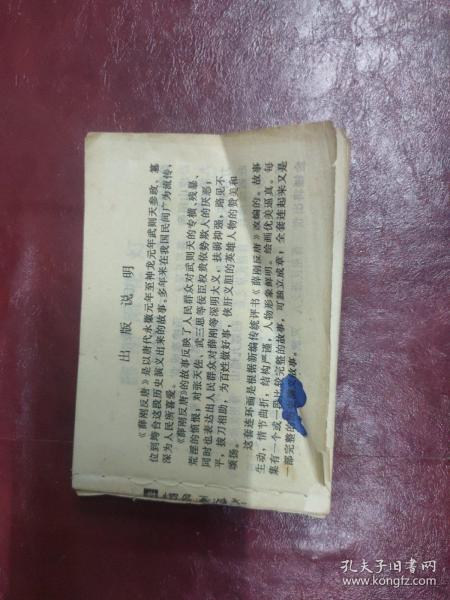 出版说明
《薛刚反唐》是以唐代永徽元年至神龙元年武则天参政、篡
位到垮台这段历史演义出来的故事。多年来在我国民间广为流传，
深为人民所喜爱。
《薛刚反唐》的故事反映了人民群众对武则天的专横、残暴、
荒淫的愤恨；对张天佐、武三思等佞臣权贵依势欺人的厌恶；
同时也表达出人民群众对薛刚等深明大义，扶弱抑强，路见不
平，拔刀相助，为百姓做好事，侠肝义胆的英雄人物的赞美和
颂扬。
这套连环画是根据新编传统评书《薛刚反唐》改编的。故事
生动，情节曲折，结构严谨，人物形象鲜明。绘画优美逼真。每
集有一个或一段比较完整的故事，可独立成章；全套连起来又是
一部完整的 故事。
孔夫子旧书网
www.kongfz.com